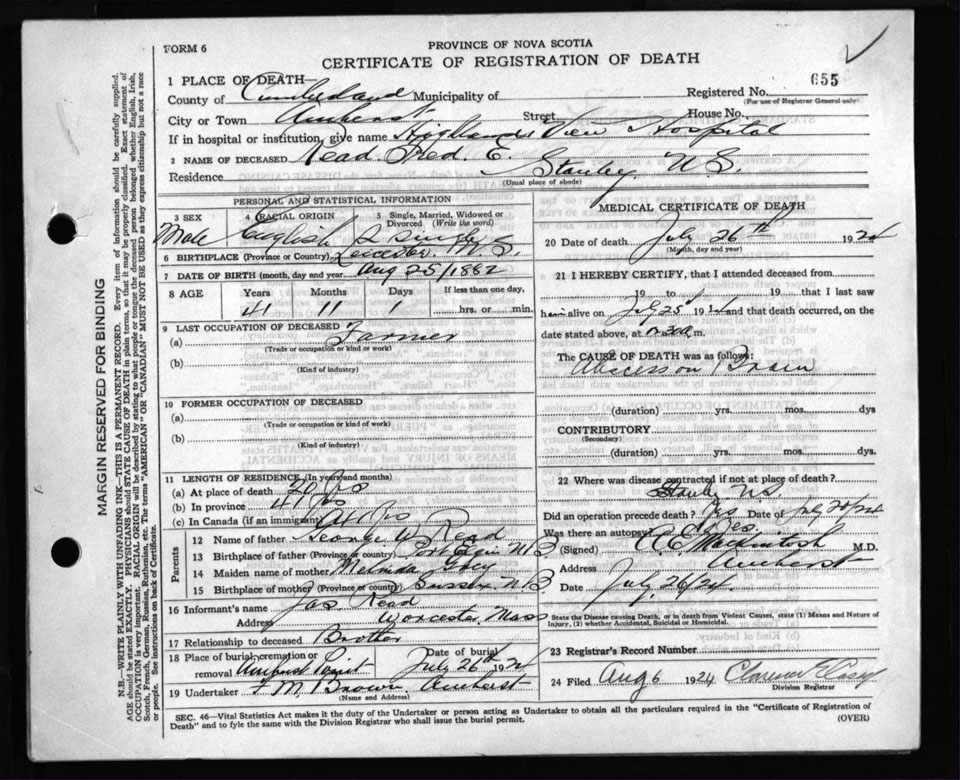 FORM 6
PROVINCE OF NOVA SCOTIA
CERTIFICATE OF REGISTRATION OF DEATH
655
1 PLACE OF DEATH
County of Cumberland Municipality of
Registered No.
(For use of Registrar General only)
City or Town Amherst Street House No.
If in hospital or institution, give name Highland View Hospital
2 NAME OF DECEASED Read, Fred. E.
Residence Stanley N.S.
(Usual place of abode)
PERSONAL AND STATISTICAL INFORMATION
3 SEX
4 RACIAL ORIGIN
5 Single, Married, Widowed or Divorced (Write the word)
Male English Single
6 BIRTHPLACE (Province or Country) Leicester N.S.
7 DATE OF BIRTH (month, day and year) Aug 25/1882
8 AGE Years Months Days If less than one day,
41 11 1 hrs. or min.
9 LAST OCCUPATION OF DECEASED
(a) Farmer
(Trade or occupation or kind of work)
(b)
(Kind of industry)
10 FORMER OCCUPATION OF DECEASED
(a)
(Trade or occupation or kind of work)
(b)
(Kind of industry)
11 LENGTH OF RESIDENCE (In years and months)
(a) At place of death 20 yrs
(b) In province 41 yrs
(c) In Canada (if an immigrant) 41 yrs
Parents
12 Name of father George W. Read
13 Birthplace of father (Province or country) Port Elgin N.B.
14 Maiden name of mother Melinda
15 Birthplace of mother (Province or country) Sussex N.B.
16 Informant's name Jas. Read
Address Worcester, Mass
17 Relationship to deceased Brother
18 Place of burial, cremation or removal Amherst Point Date of burial July 26th 1924
19 Undertaker F. M. Brown Amherst
(Name and Address)
MEDICAL CERTIFICATE OF DEATH
20 Date of death July 26th 1924
(Month, day and year)
21 I HEREBY CERTIFY, that I attended deceased from
19 to 19 that I last saw
h alive on July 25 1924 and that death occurred, on
date stated above, at m.
The CAUSE OF DEATH was as follows:
Abscess on Brain
(duration) yrs. mos. dys
CONTRIBUTORY
(Secondary)
(duration) yrs. mos. dys.
22 Where was disease contracted if not at place of death?
Stanley N.S.
Did an operation precede death? Yes Date of July 20/24
Was there an autopsy? Yes.
(Signed) C. E. McIntosh M.D.
Address Amherst
Date July 26/24
State the Disease causing Death, or in death from Violent Causes, state (1) Means and Nature of Injury, (2) whether Accidental, Suicidal or Homicidal.
23 Registrar's Record Number
24 Filed Aug 6 1924 Clarence E Casey
Division Registrar
SEC. 46—Vital Statistics Act makes it the duty of the Undertaker or person acting as Undertaker to obtain all the particulars required in the "Certificate of Registration of
Death" and to fyle the same with the Division Registrar who shall issue the burial permit.
(OVER)
MARGIN RESERVED FOR BINDING
N.B.—WRITE PLAINLY WITH UNFADING INK—THIS IS A PERMANENT RECORD. Every item of information should be carefully supplied.
AGE should be stated EXACTLY. PHYSICIANS should STATE CAUSE OF DEATH in plain terms, so that it may be properly classified. Exact statement of
OCCUPATION is very important. RACIAL ORIGIN will be described by stating to what people or tongue the deceased person belonged whether English, Irish,
Scotch, French, German, Russian, Ruthenian, etc. The terms "AMERICAN" OR "CANADIAN" MUST NOT BE USED as they express citizenship but not a race
or people. See instructions on back of Certificate.